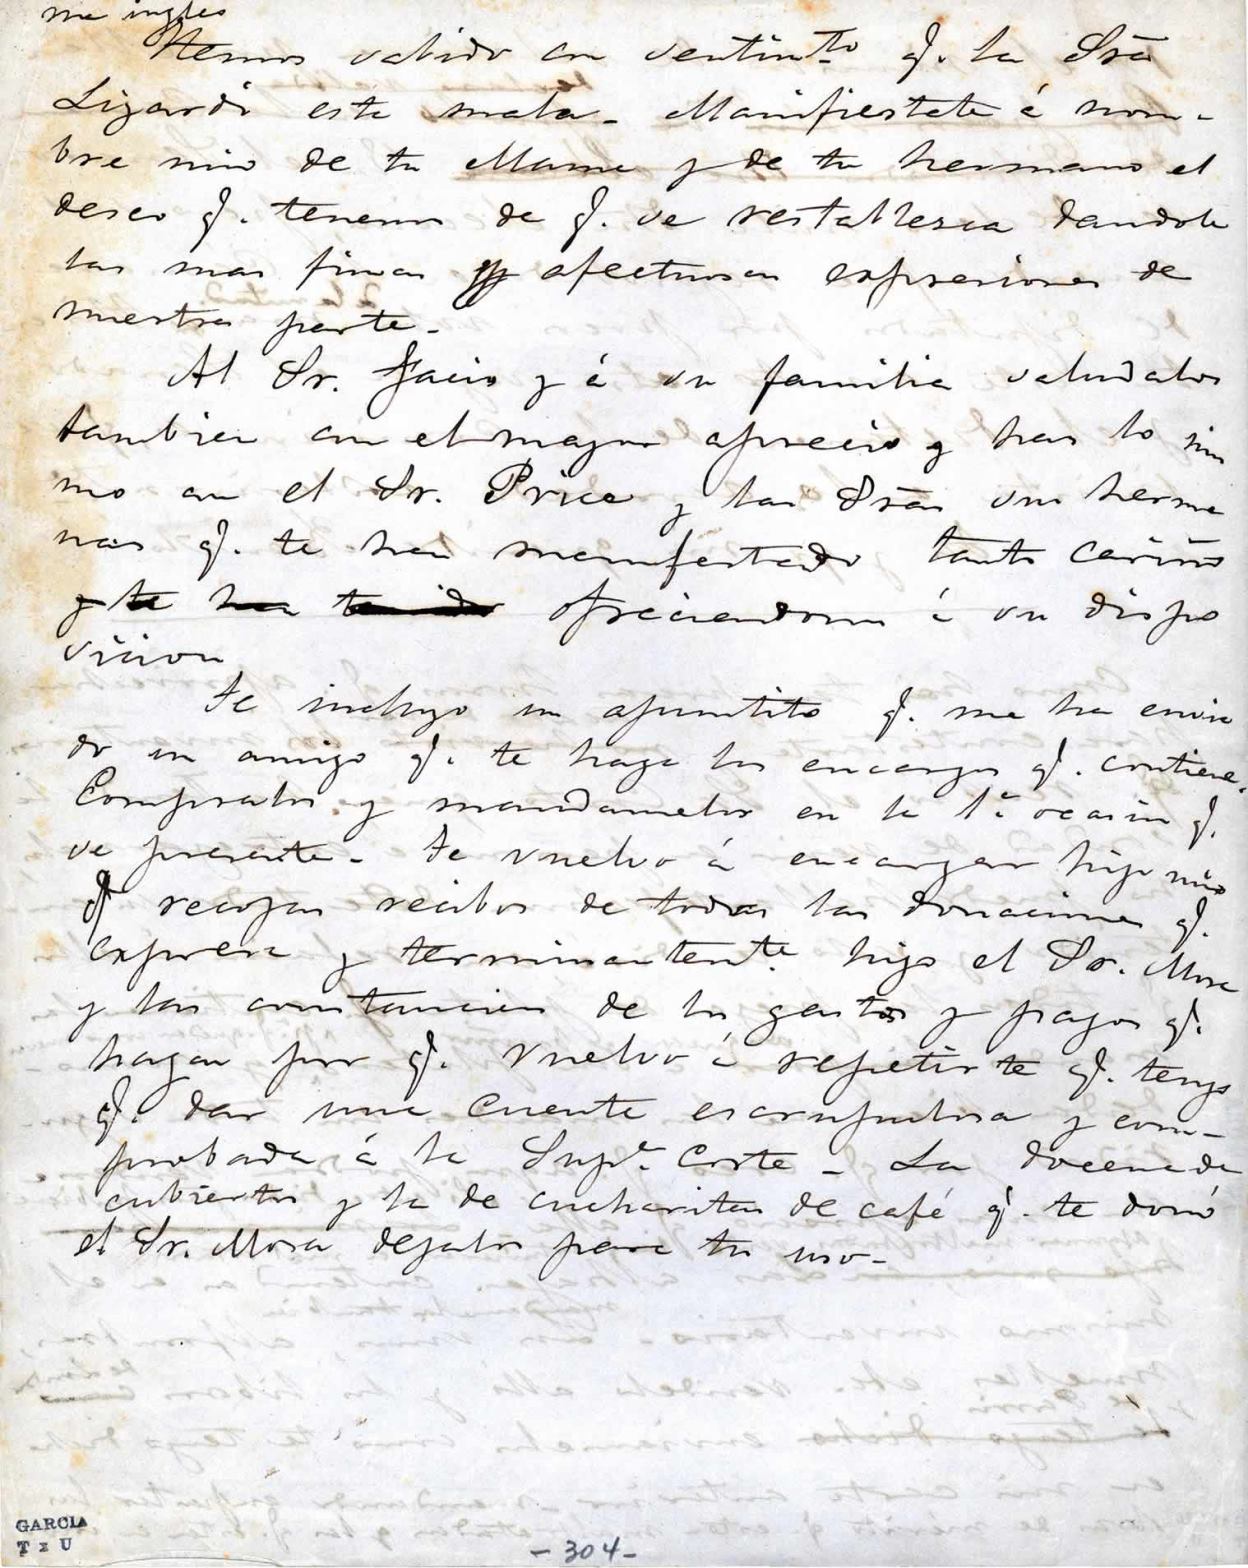 me ingles
Hemos sabido con sentim.to q. la Sra
Lizardi está mala - Manifiestale á nom-
bre mio de tu Mama y de tu hermano el
deseo q. tenemos de q. se restablezca dandole
las mas finas y afectuosas expresiones de
nuestra parte.-
Al Sr. Facio y á su familia saludalos
tambien con el mayor aprecio y haz lo mis
mo con el Sr. Price y las Sras sus herma
nas q. te han manifestado tanto cariño
y te han tenido ofreciendome á su dispo
sicion
Te incluyo un apuntito q. me ha envia
do un amigo q. te haga los encargos q. contiene.
Compralos y mandamelos en la 1.a ocasion q.
se presente.- Te vuelvo á encargar hijo mio
q. recojas recibos de todas las donaciones q.
expresa y terminantem.te hizo el Sr. Mora
y las constancias de los gastos y pagos q.
hagas por q. vuelvo á repetirte q. tengo
q. dar una cuenta escrupulosa y com-
probada á la Sup.a Corte - La docena de
cubiertos y la de cucharitas de café q. te donó
el Sr. Mora dejalos para tu uso-
GARCIA
- 304 -